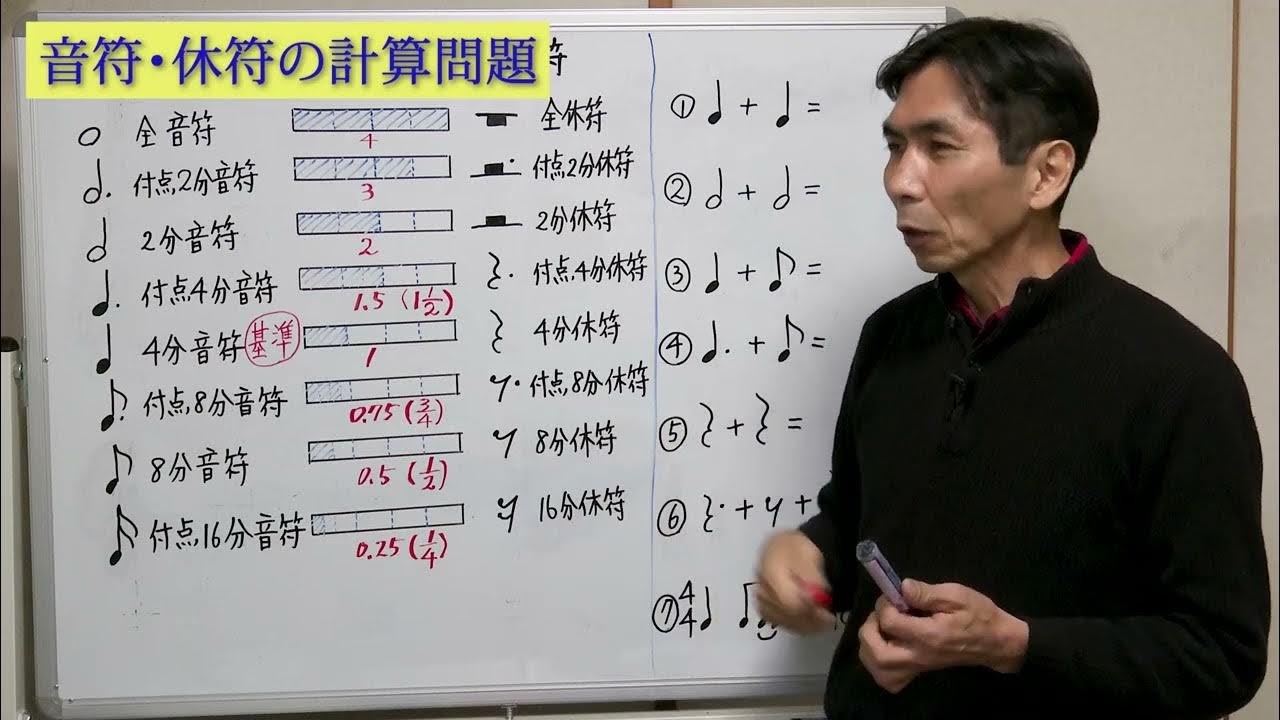 音符・休符の計算問題
符
全音符 4 全休符
付点2分音符 3 付点2分休符
2分音符 2 2分休符
付点4分音符 1.5 (1 1/2) 付点4分休符
4分音符 基準 1 4分休符
付点8分音符 0.75 (3/4) 付点8分休符
8分音符 0.5 (1/2) 8分休符
付点16分音符 0.25 (1/4) 16分休符
① ♩ + ♩ =
② 𝅗𝅥 + 𝅗𝅥 =
③ ♩ + ♪ =
④ ♩. + ♪ =
⑤ 𝄽 + 𝄽 =
⑥ 𝄽. + 𝄾 +
⑦ 4/4 ♩